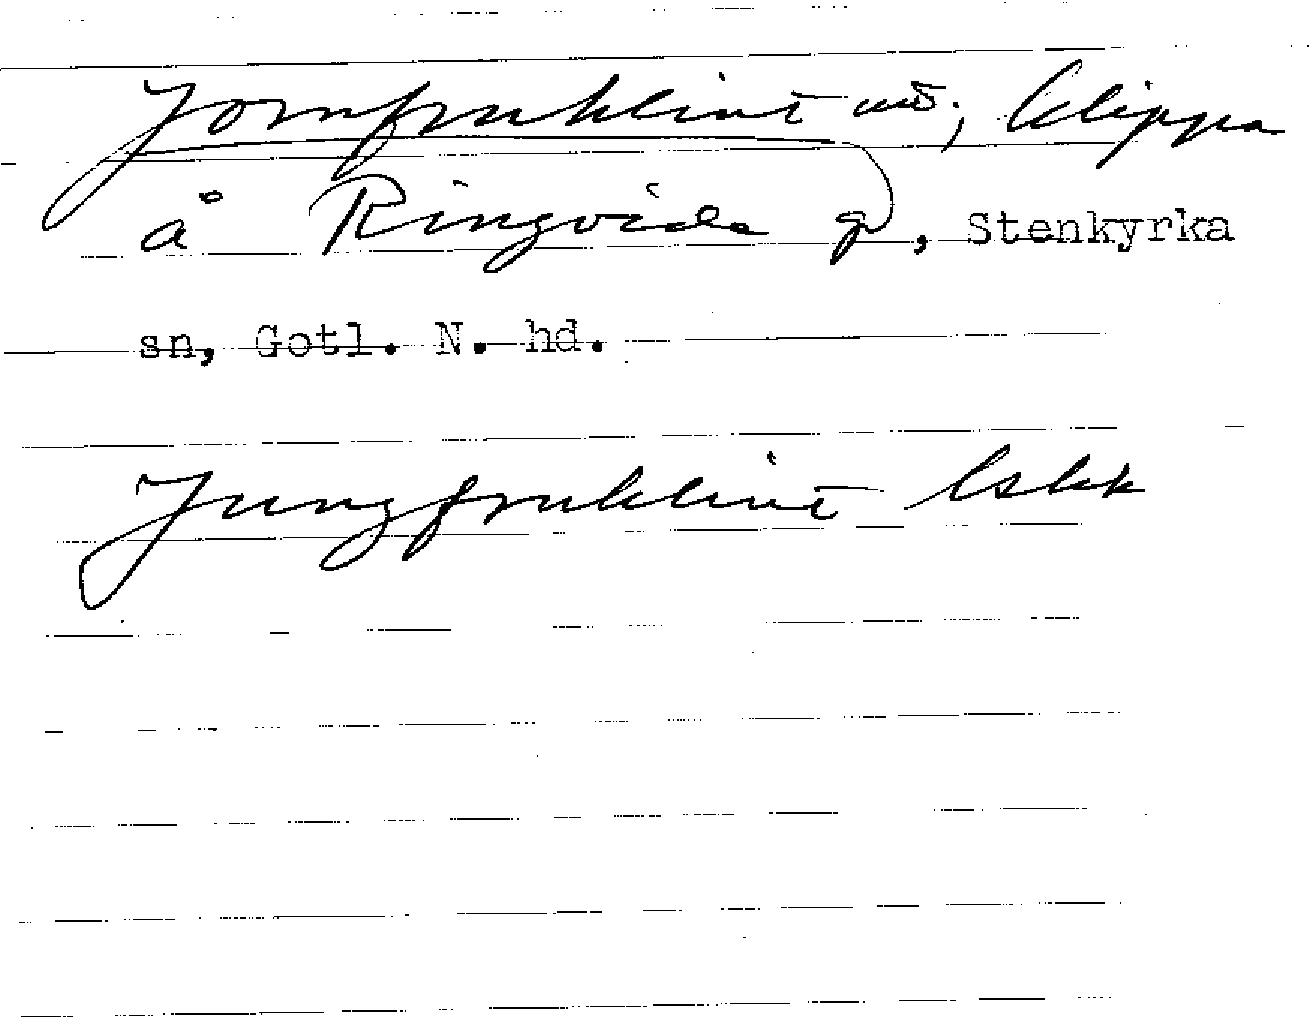 Jomfruklint
klippa
å Ringvide g, Stenkyrka
sn, Gotl. N. hd.
Jungfruklint